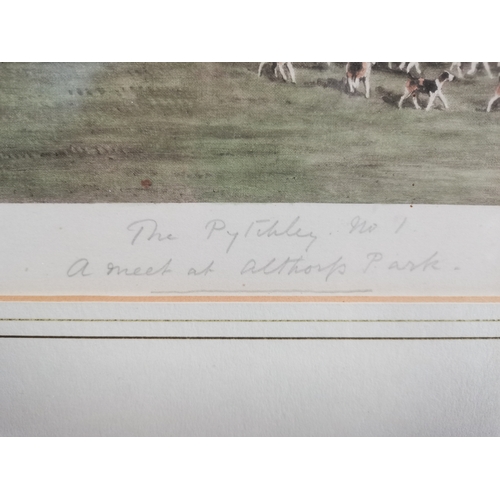 The Pytchley. No 1
A meet at Althorp Park.